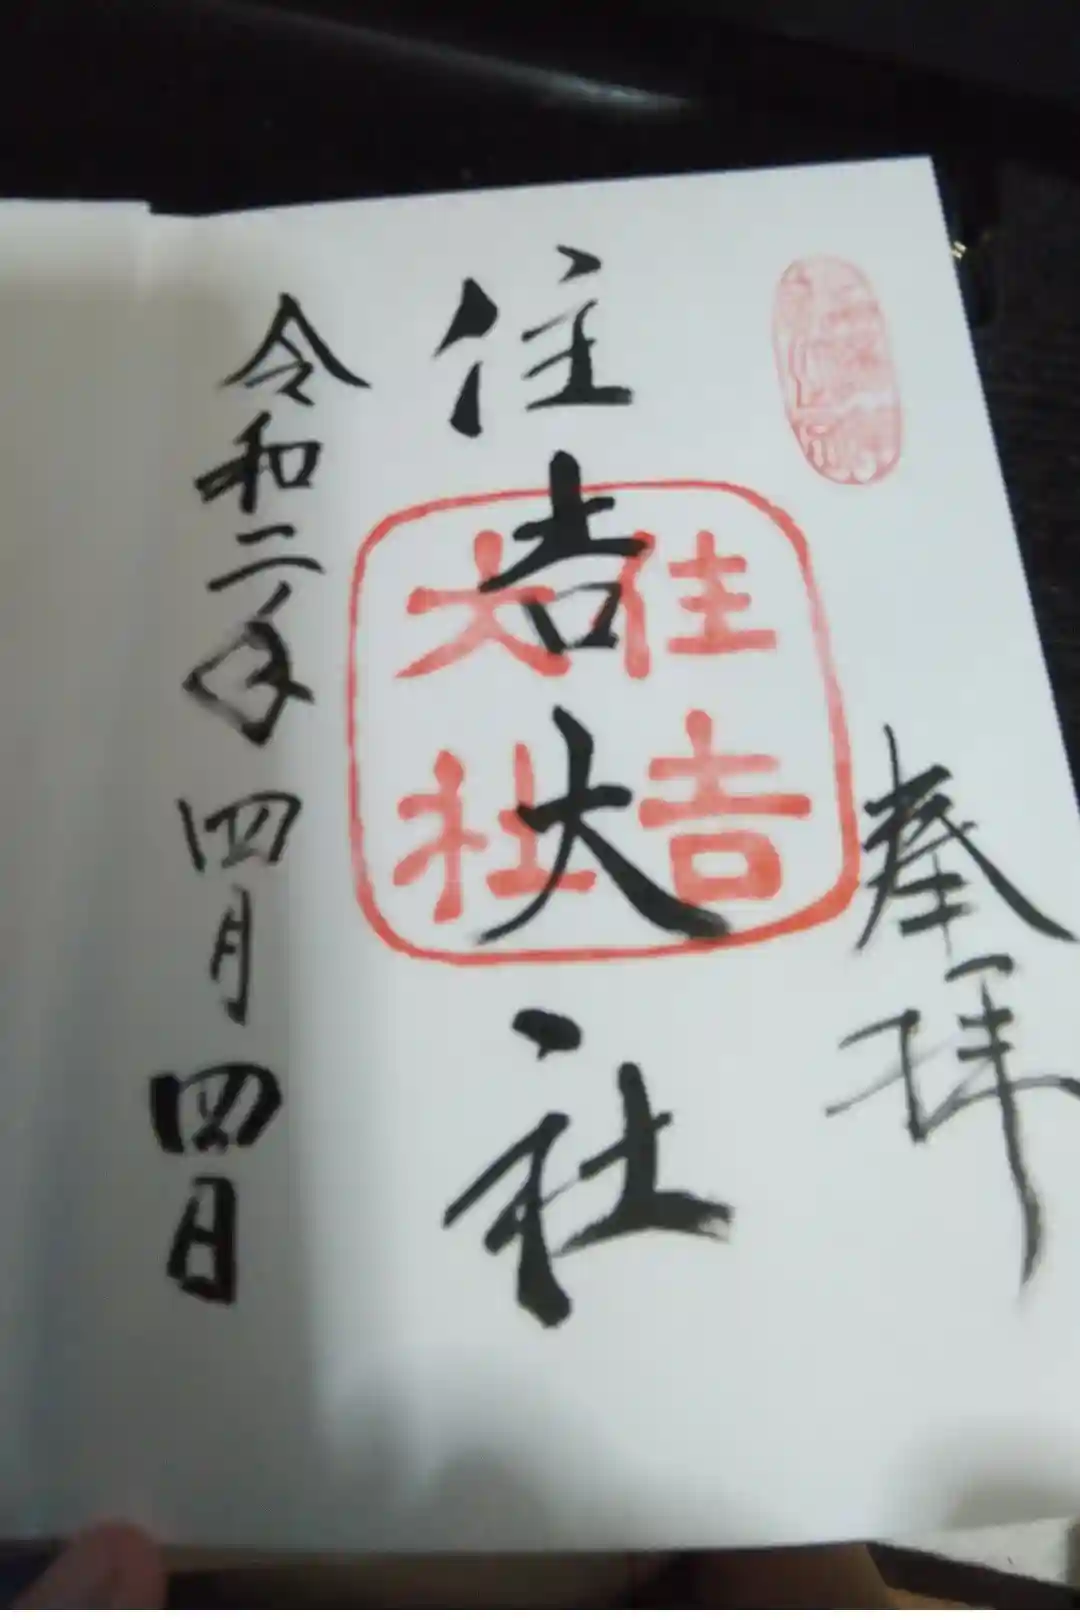 奉拝
住吉大社
住吉
大社
令和二年四月四日